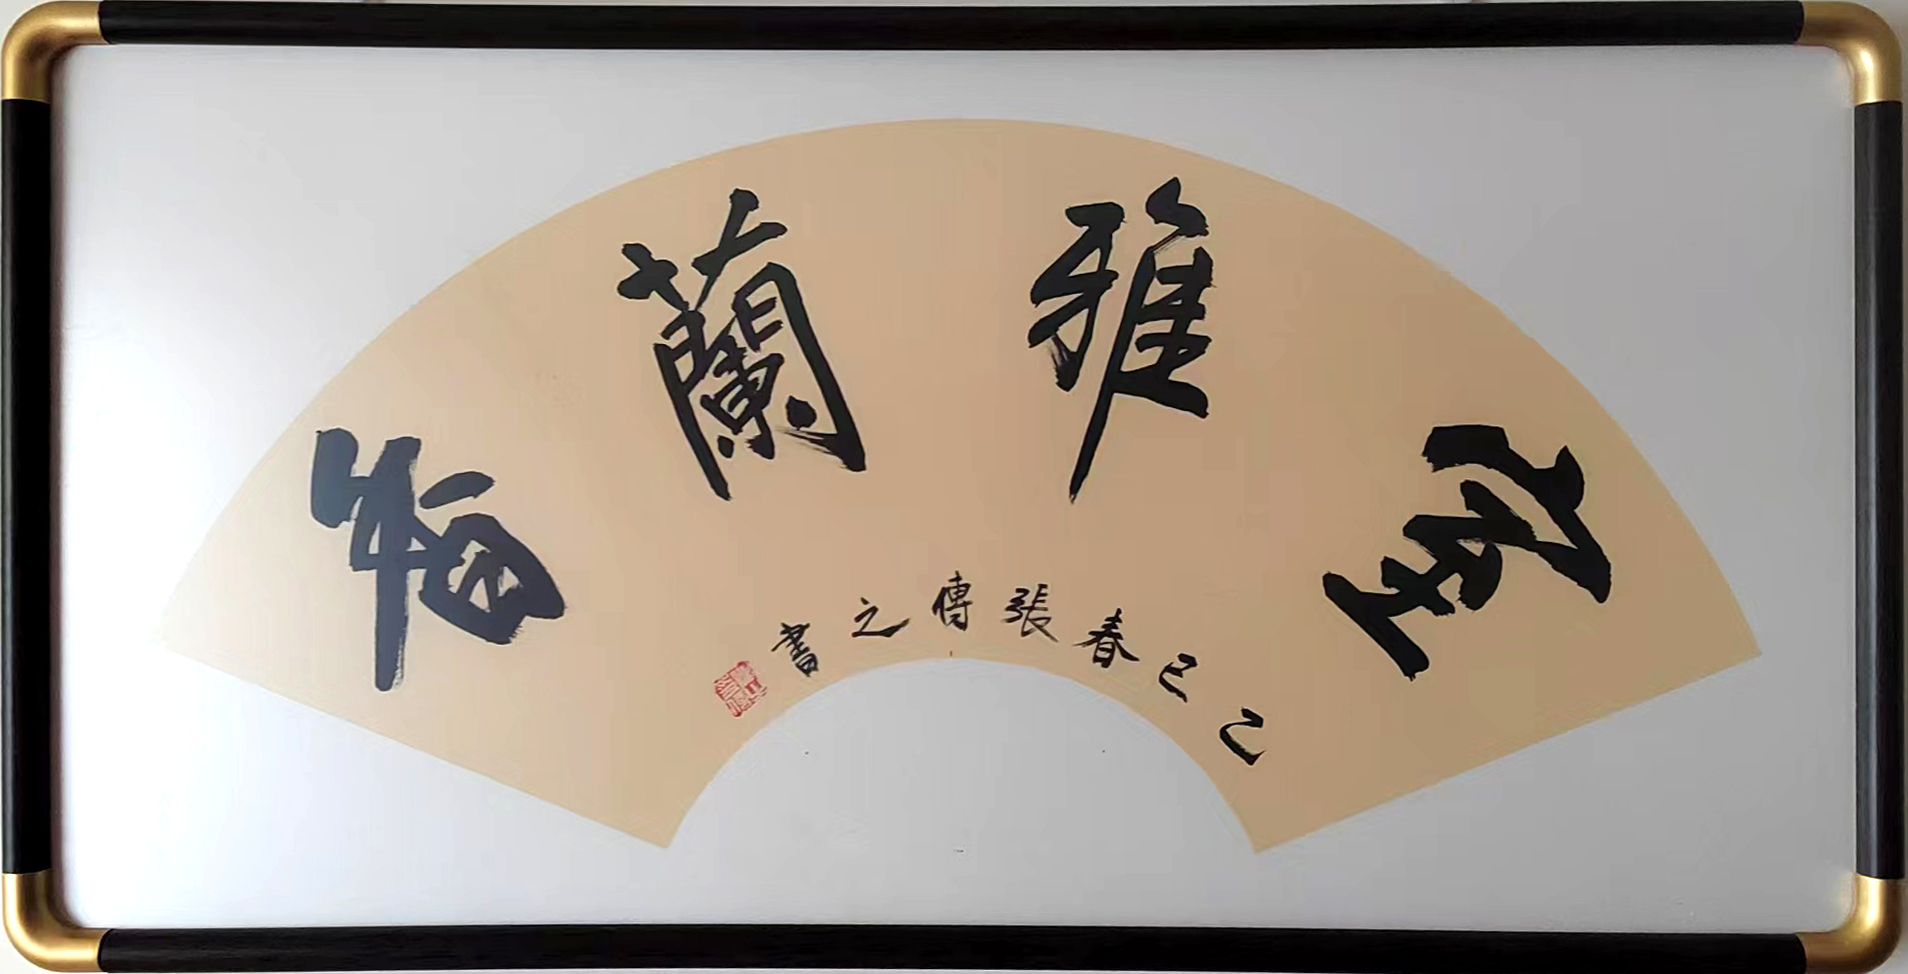 室雅蘭香
己巳春張傳之書